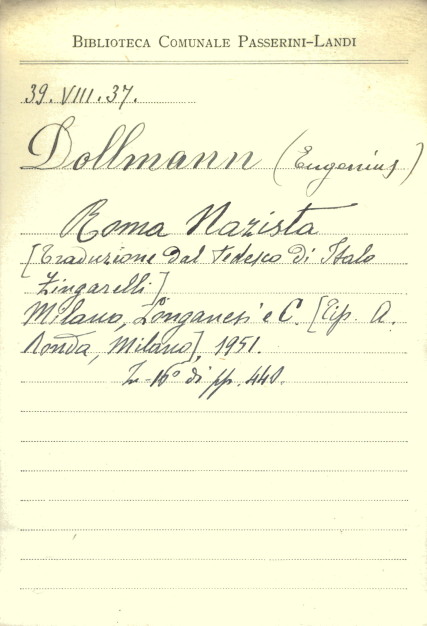 BIBLIOTECA COMUNALE PASSERINI-LANDI
39. VIII. 37.
Dollmann (Eugenius)
Roma Nazista
[Traduzione dal tedesco di Italo
Zingarelli]
Milano, Longanesi e C. [Tip. A.
Ronda, Milano], 1951.
In-16º di pp. 440.